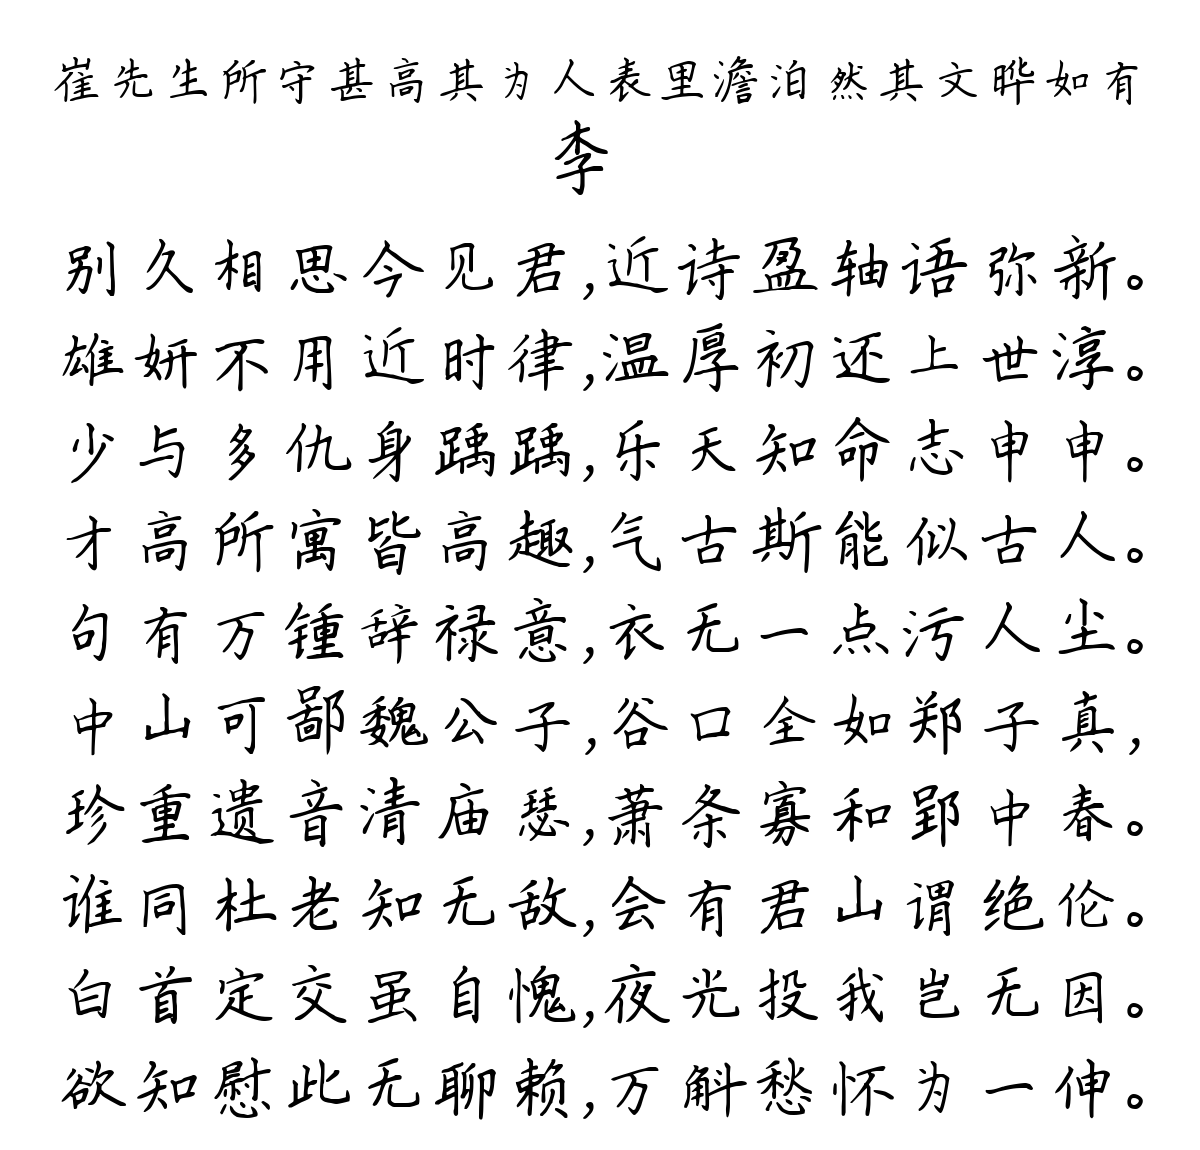 崔先生所守甚高其为人表里澹泊然其文晔如有
李
别久相思今见君,近诗盈轴语弥新。
雄妍不用近时律,温厚初还上世淳。
少与多仇身踽踽,乐天知命志申申。
才高所寓皆高趣,气古斯能似古人。
句有万锺辞禄意,衣无一点污人尘。
中山可鄙魏公子,谷口全如郑子真,
珍重遗音清庙瑟,萧条寡和郢中春。
谁同杜老知无敌,会有君山谓绝伦。
白首定交虽自愧,夜光投我岂无因。
欲知慰此无聊赖,万斛愁怀为一伸。